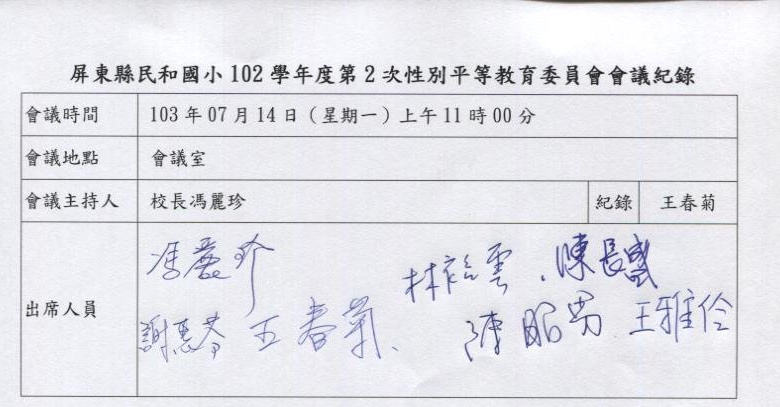 屏東縣民和國小 102 學年度第 2 次性別平等教育委員會會議紀錄
會議時間 103 年 07 月 14 日（星期一）上午 11 時 00 分
會議地點 會議室
會議主持人 校長馮麗珍 紀錄 王春菊
出席人員
馮麗珍 林 雲、陳長盛
謝惠 王春菊、陳昭男 王雅伶